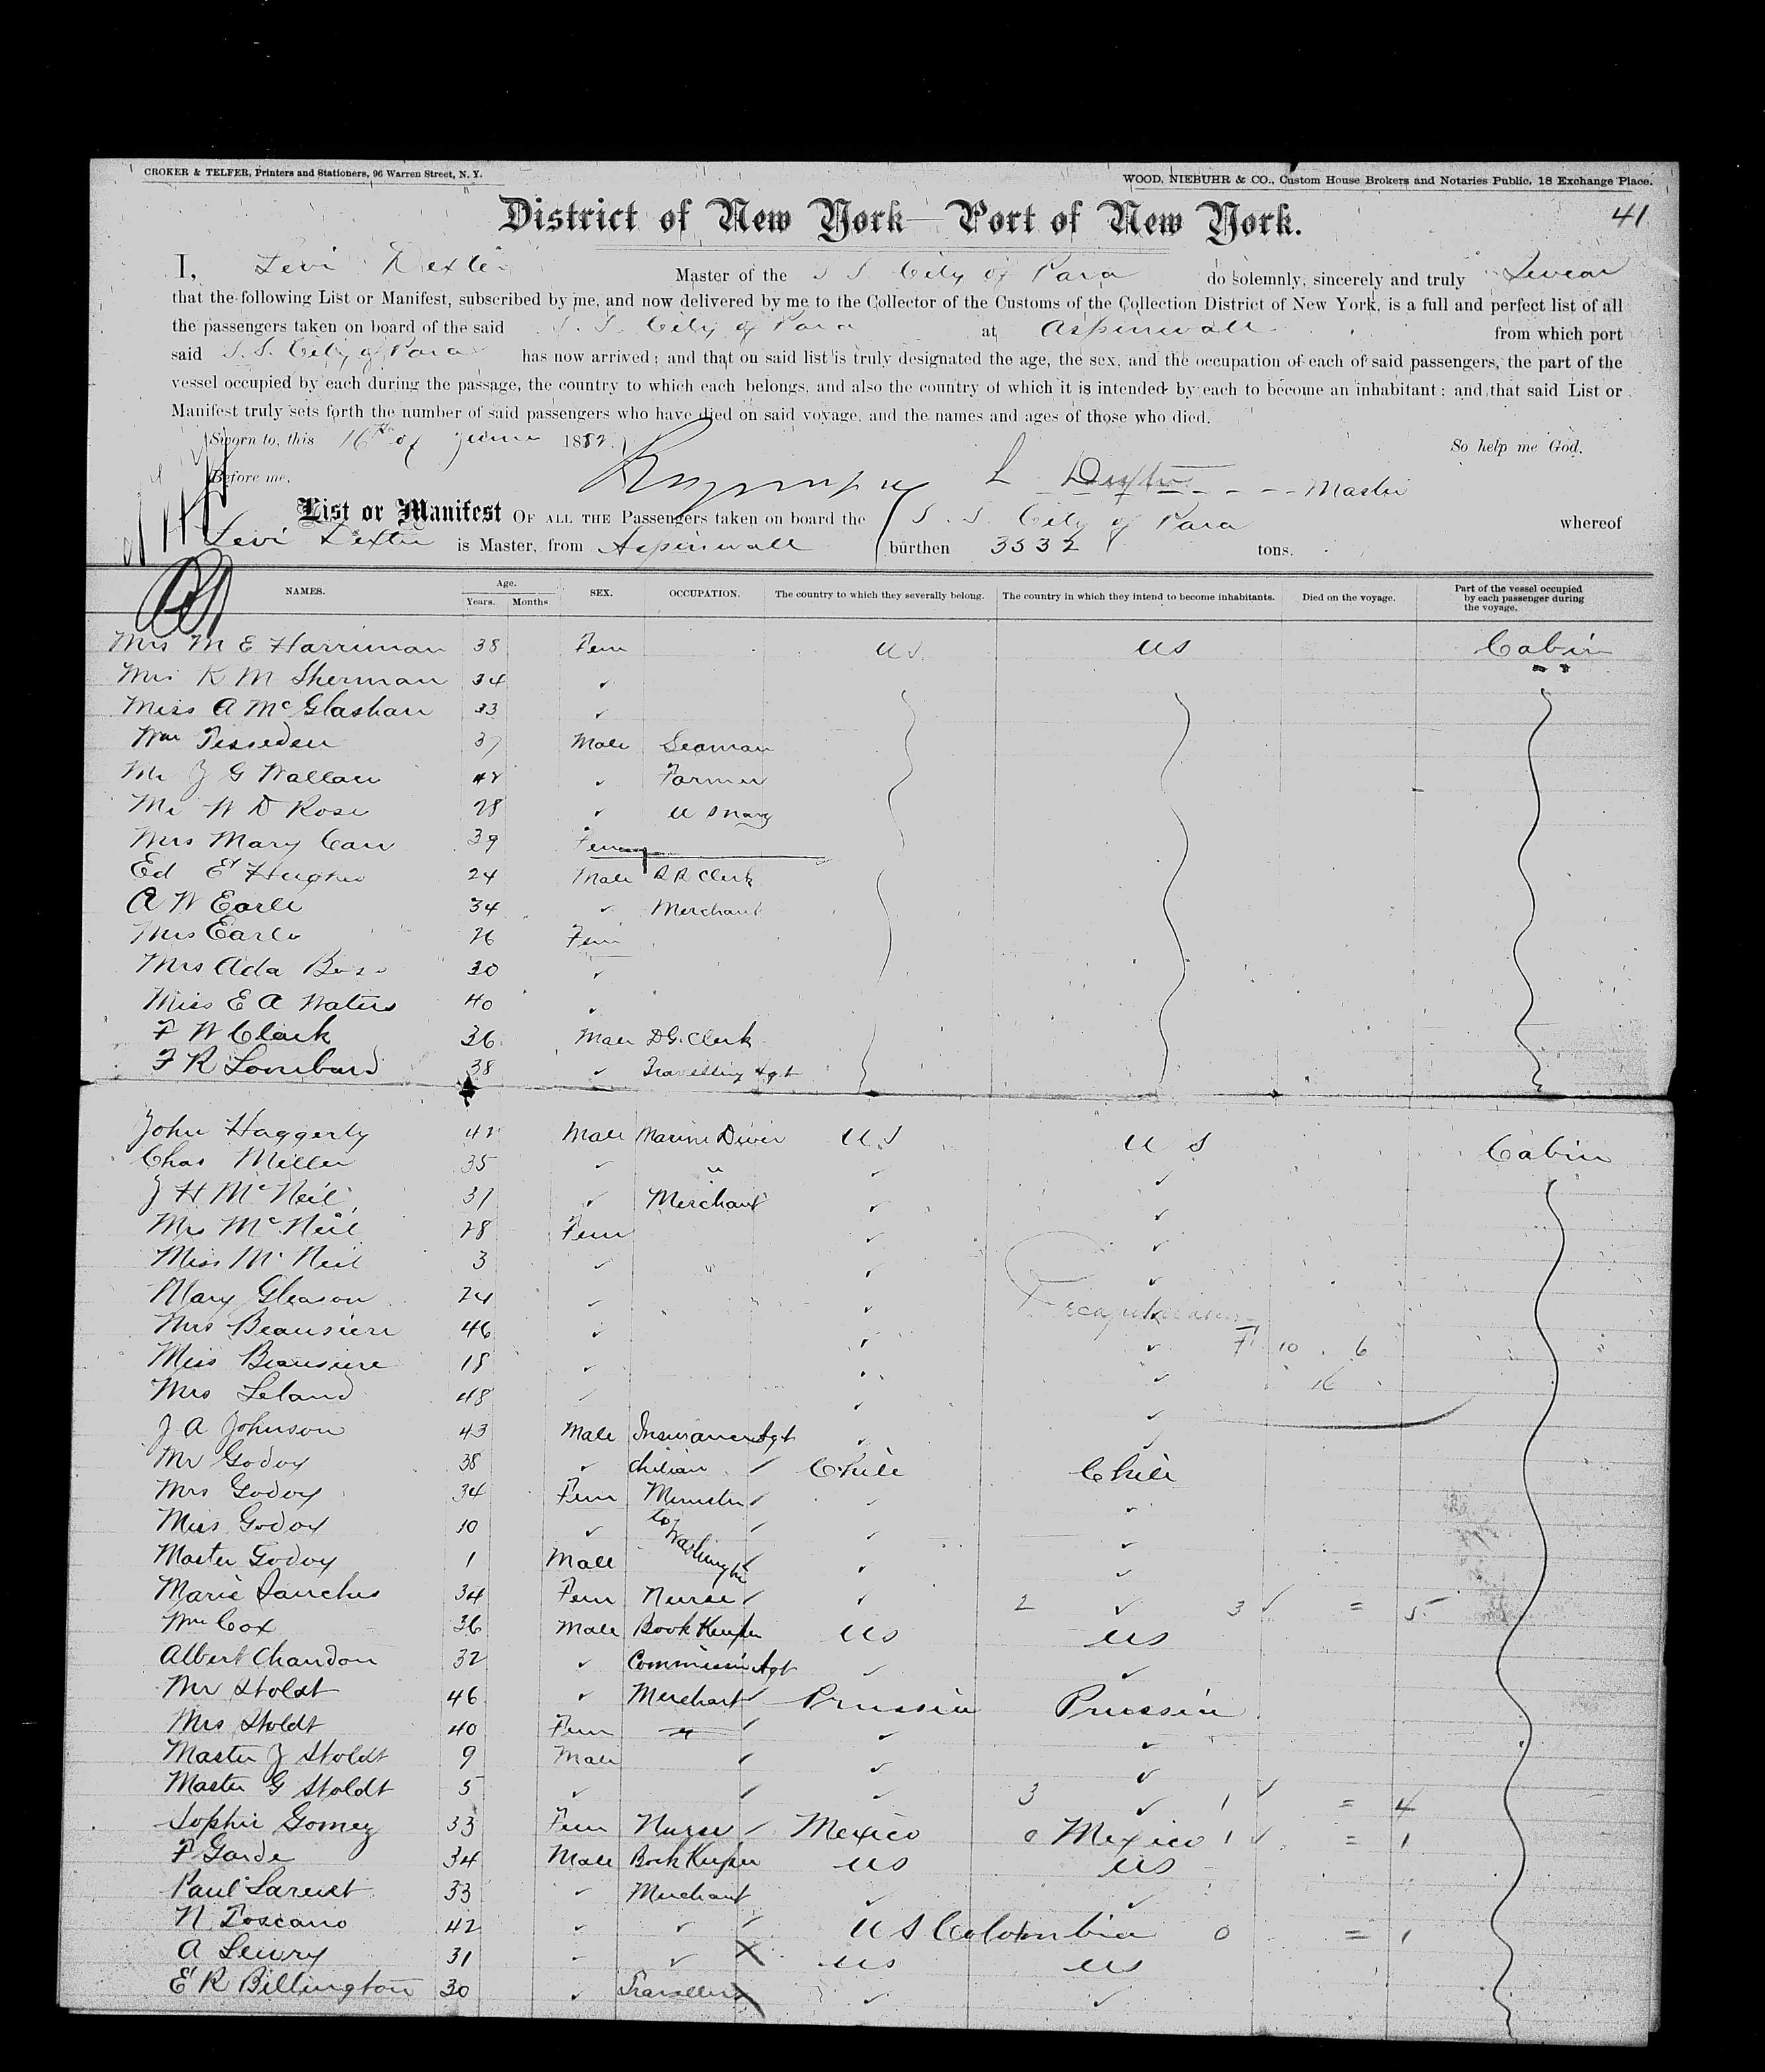 CROKER & TELFER, Printers and Stationers, 96 Warren Street, N. Y.
WOOD, NIEBUHR & CO., Custom House Brokers and Notaries Public, 18 Exchange Place.
District of New York—Port of New York.
41
I, Levi Dexter Master of the S S City of Para do solemnly, sincerely and truly Swear
that the following List or Manifest, subscribed by me, and now delivered by me to the Collector of the Customs of the Collection District of New York, is a full and perfect list of all
the passengers taken on board of the said S. S. City of Para at Aspinwall from which port
said S. S. City of Para has now arrived; and that on said list is truly designated the age, the sex, and the occupation of each of said passengers, the part of the
vessel occupied by each during the passage, the country to which each belongs, and also the country of which it is intended by each to become an inhabitant; and that said List or
Manifest truly sets forth the number of said passengers who have died on said voyage, and the names and ages of those who died.
Sworn to, this 16th of June 1882. So help me God.
Before me, L Dexter Master
List or Manifest OF ALL THE Passengers taken on board the S. S. City of Para whereof
Levi Dexter is Master, from Aspinwall burthen 3532 tons.
NAMES. Age. Years. Months SEX. OCCUPATION. The country to which they severally belong. The country in which they intend to become inhabitants. Died on the voyage. Part of the vessel occupied by each passenger during the voyage.
Mrs M E Harriman 38 Fem US US Cabin
Mrs K M Sherman 34 "
Miss A McGlashan 33 "
Wm 37 Male Seaman
Mr J G Wallace 42 " Farmer
Mr W D Rose 28 " U S Navy
Mrs Mary Carr 39 Fem
Ed E Hughes 24 Male R R Clerk
A W Earle 34 " Merchant
Mrs Earle 26 Fem
Mrs Ada 30 "
Miss E A Waters 40 "
F W Clark 36 Male D G. Clerk
F R Lombard 38 " Travelling Agt
John Haggerty 42 Male Marine Diver U S U S Cabin
Chas Miller 35 " " " "
J H McNeil 37 " Merchant " "
Mrs McNeil 28 Fem " "
Miss McNeil 3 " " "
Mary Gleason 24 " " "
Recapitulation
Mrs Beausiere 46 " " "
7 10 6
Miss Beausiere 18 " " "
16
Mrs Leland 48 " " "
J A Johnson 43 Male Insurance Agt " "
Mr Godoy 38 " Chilian Chile Chile
Mrs Godoy 34 Fem Minister " "
Miss Godoy 10 " to " "
Master Godoy 1 Male Washington " "
Marie Sanches 34 Fem Nurse " 2 " 3 = 5
Wm Cox 36 Male Book Keeper US US
Albert Chandon 32 " Commission Agt " "
Mr Stoldt 46 " Merchant Prussia Prussia
Mrs Stoldt 40 Fem " "
Master J Stoldt 9 Male " "
Master G Stoldt 5 " " 3 " 1 = 4
Sophie Gomez 33 Fem Nurse Mexico 0 Mexico 1 = 1
F Garde 34 Male Book Keeper US US
Paul 33 " Merchant " "
N. Toscano 42 " " U S Colombia 0 = 1
A 31 " " US US
E R Billington 30 " Traveller " "